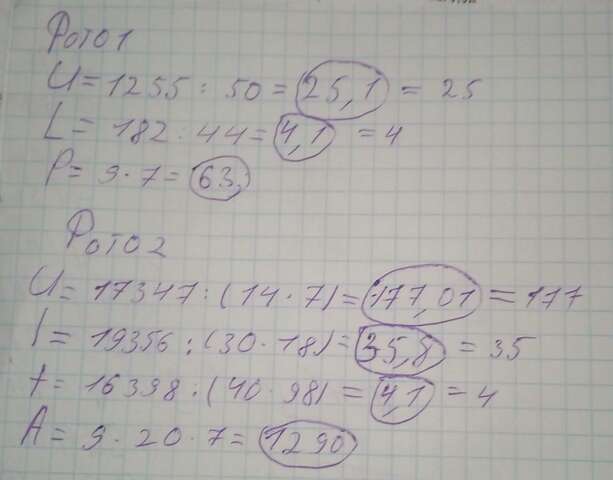 Фото 1
U = 1255 : 50 = 25,1 = 25
L = 182 : 44 = 4,1 = 4
P = 9 · 7 = 63
Фото 2
U = 17347 : (14 · 7) = 177,01 = 177
I = 19356 : (30 · 18) = 35,8 = 35
t = 16398 : (40 · 98) = 4,1 = 4
A = 9 · 20 · 7 = 1290